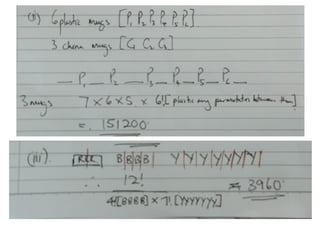 (ii) 6 plastic mugs [P₁ P₂ P₃ P₄ P₅ P₆]
3 china mugs [C₁ C₂ C₃]
_ P₁ _ P₂ _ P₃ _ P₄ _ P₅ _ P₆ _
3 mugs 7 × 6 × 5 × 6! [plastic any permutation between them]
= 151200
(iii). RRR BBBB YYYYYYY
∴ 12! = 3960
4! [BBBB] × 7! [YYYYYYY]